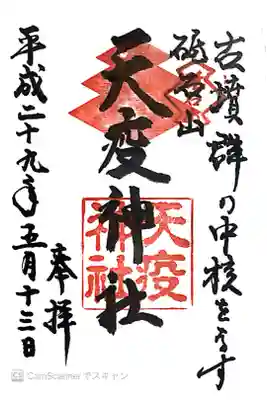 古墳群の中核をなす
天疫神社
天疫
神社
奉拝
平成二十九年五月十三日
CS CamScanner でスキャン